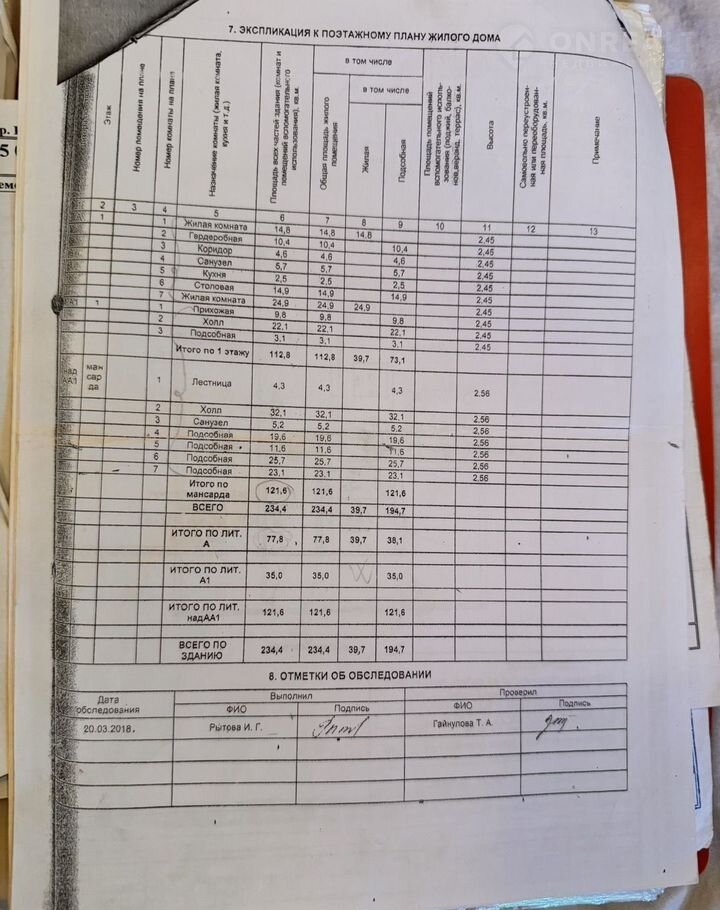 7. ЭКСПЛИКАЦИЯ К ПОЭТАЖНОМУ ПЛАНУ ЖИЛОГО ДОМА
Этаж
Номер помещения на плане
Номер комнаты на плане
Назначение комнаты (жилая комната, кухня и т.д.)
Площадь всех частей здания (комнат и помещений вспомогательного использования), кв.м.
в том числе
Общая площадь жилого помещения
в том числе
Жилая
Подсобная
Площадь помещений вспомогательного исполь-зования (лоджий, балко-нов, веранд, террас), кв.м.
Высота
Самовольно переустроен-ная или переоборудован-ная площадь, кв.м.
Примечание
2 3 4 5 6 7 8 9 10 11 12 13
1 1 Жилая комната 14,8 14,8 14,8 2,45
2 Гардеробная 10,4 10,4 10,4 2,45
3 Коридор 4,6 4,6 4,6 2,45
4 Санузел 5,7 5,7 5,7 2,45
5 Кухня 2,5 2,5 2,5 2,45
6 Столовая 14,9 14,9 14,9 2,45
7 Жилая комната 24,9 24,9 24,9 2,45
1 1 Прихожая 9,8 9,8 9,8 2,45
2 Холл 22,1 22,1 22,1 2,45
3 Подсобная 3,1 3,1 3,1 2,45
Итого по 1 этажу 112,8 112,8 39,7 73,1
над АА1 ман сар да 1 Лестница 4,3 4,3 4,3 2,56
2 Холл 32,1 32,1 32,1 2,56
3 Санузел 5,2 5,2 5,2 2,56
4 Подсобная 19,6 19,6 19,6 2,56
5 Подсобная 11,6 11,6 11,6 2,56
6 Подсобная 25,7 25,7 25,7 2,56
7 Подсобная 23,1 23,1 23,1 2,56
Итого по мансарда 121,6 121,6 121,6
ВСЕГО 234,4 234,4 39,7 194,7
ИТОГО ПО ЛИТ. А 77,8 77,8 39,7 38,1
ИТОГО ПО ЛИТ. А1 35,0 35,0 35,0
ИТОГО ПО ЛИТ. надАА1 121,6 121,6 121,6
ВСЕГО ПО ЗДАНИЮ 234,4 234,4 39,7 194,7
8. ОТМЕТКИ ОБ ОБСЛЕДОВАНИИ
Дата обследования
Выполнил Проверил
ФИО Подпись ФИО Подпись
20.03.2018. Рытова И. Г. Гайнулова Т. А.